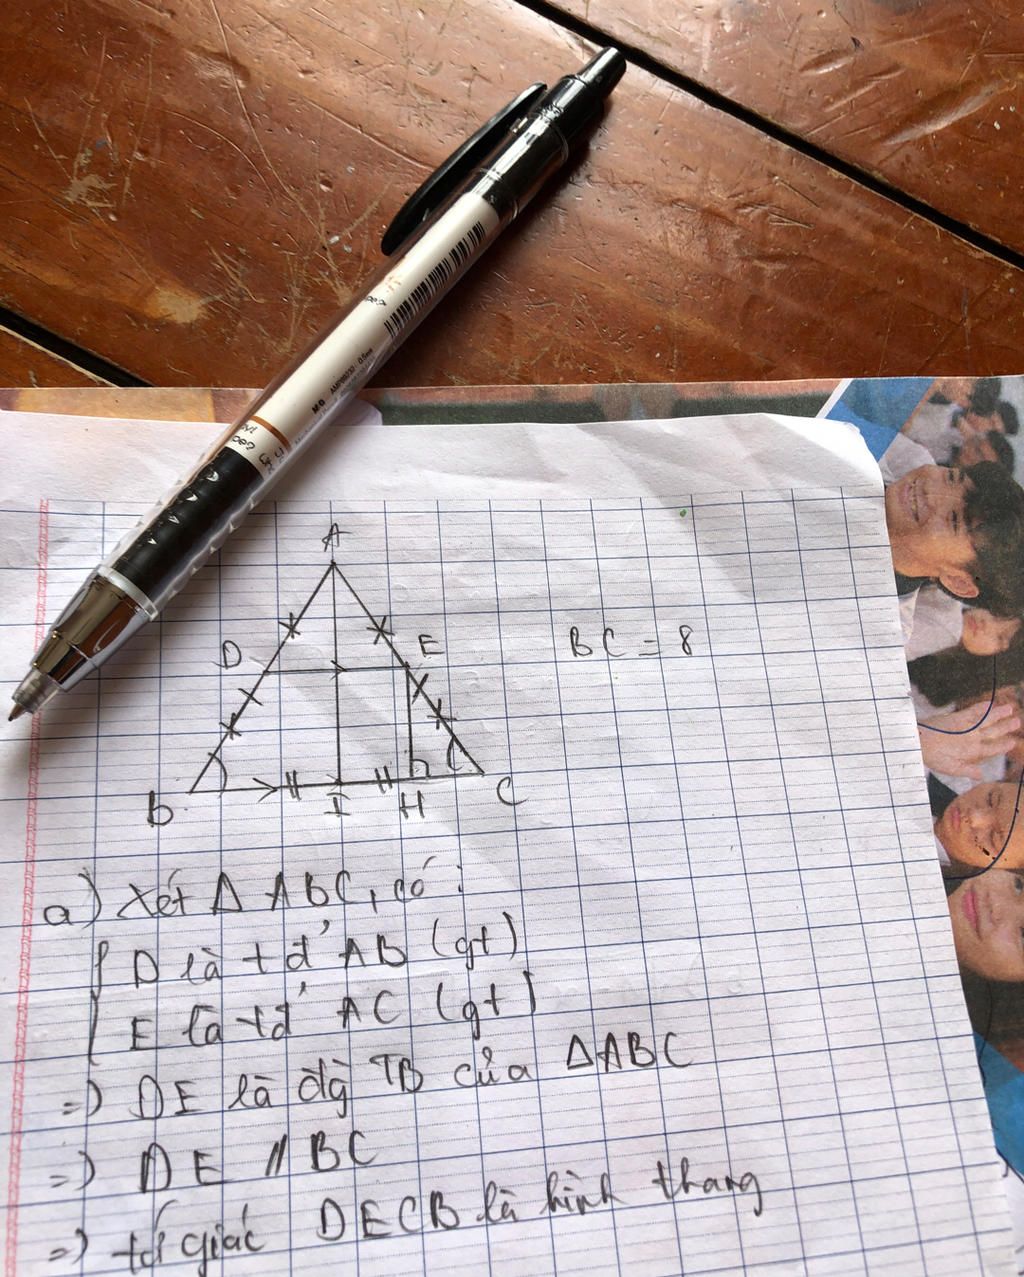 AMP88932 · 0.5mm
M&G
A
D
E
BC = 8
B
I
H
C
a) Xét Δ ABC, có:
D là tđ' AB (gt)
E là tđ' AC (gt)
=) DE là đg TB của ΔABC
=) DE // BC
=) tứ giác DECB là hình thang